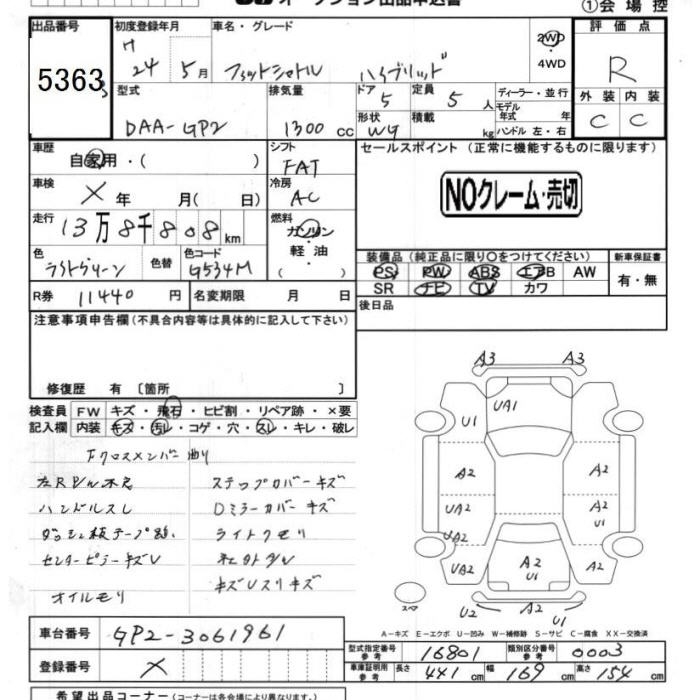 オークション出品申込書
①会場控
出品番号 5363
初度登録年月 H 24 5月
車名・グレード フィットシャトル ハイブリッド
2WD ・ 4WD
評価点 R
型式 DAA-GP2
排気量 1300 cc
ドア 5
形状 WG
定員 5 人
積載 kg
ディーラー・並行
モデル年式 年
ハンドル 左・右
外装 C
内装 C
車歴 自家用・( )
シフト FAT
セールスポイント (正常に機能するものに限ります)
車検 × 年 月( 日)
冷房 AC
NOクレーム・売切
走行 13万8千808km
燃料 ガソリン 軽油 ( )
色 ライトグリーン
色替
色コード G534M
装備品(純正品に限り〇をつけてください)
PS PW ABS エアB AW
SR ナビ TV カワ
新車保証書 有・無
R券 11440 円
名変期限 月 日
後日品
注意事項申告欄(不具合内容等は具体的に記入して下さい)
修復歴 有 〔箇所 〕
検査員記入欄
FW キズ・飛石・ヒビ割・リペア跡・×要
内装 キズ・汚レ・コゲ・穴・スレ・キレ・破レ
Fクロスメンバー曲り
ステップカバーキズ
ハンドルスレ
Dミラーカバーキズ
ライトクモリ
センターピラーキズU
キズUスリキズ
オイルモリ
A3 A3
U1 UA1
A2 A2
UA2 A2 U1
UA2
UA2 A2 U1 A2
スペア U2 A2 U1
A-キズ E-エクボ U-凹み W-補修跡 S-サビ C-腐食 XX-交換済
車台番号 GP2-3061961
型式指定番号 参考 16801
類別区分番号 参考 0003
登録番号 ×
車庫証明用 参考 長さ 441 cm 幅 169 cm 高さ 154 cm
希望出品コーナー(コーナーは各会場により異なります)